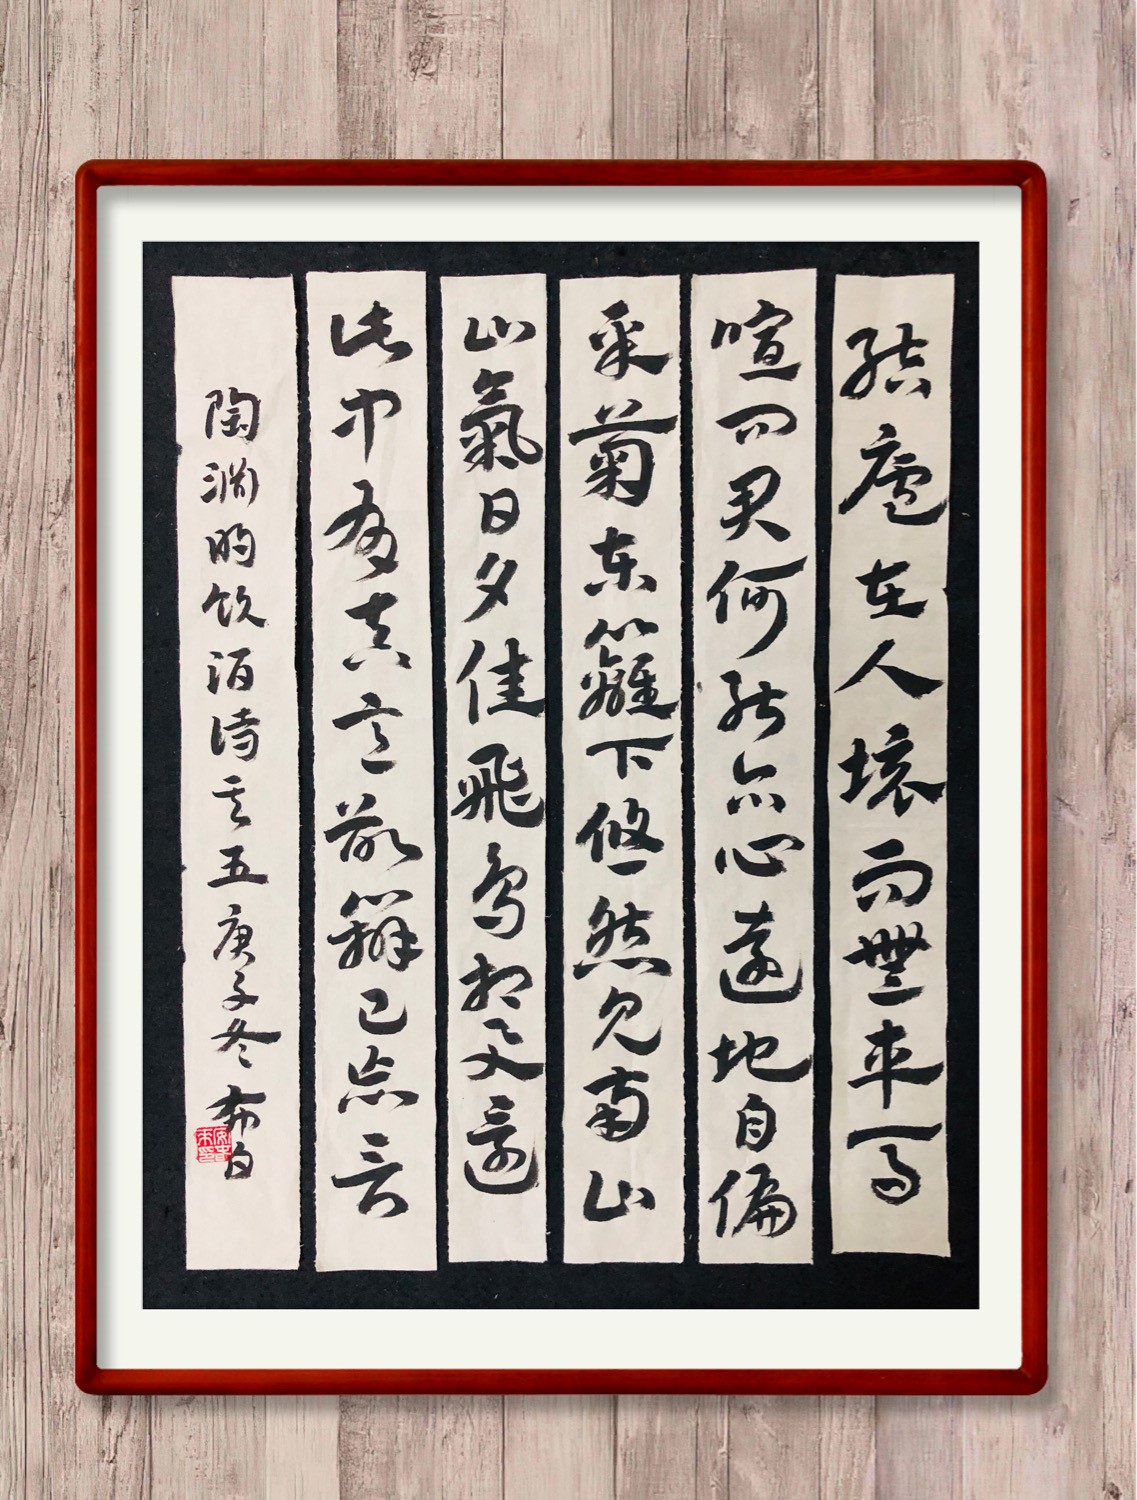 結廬在人境而無車馬
喧问君何能尔心遠地自偏
采菊东籬下悠然见南山
山氣日夕佳飛鳥相与還
此中有真意欲辩已忘言
陶渊明饮酒诗其五庚子冬布白